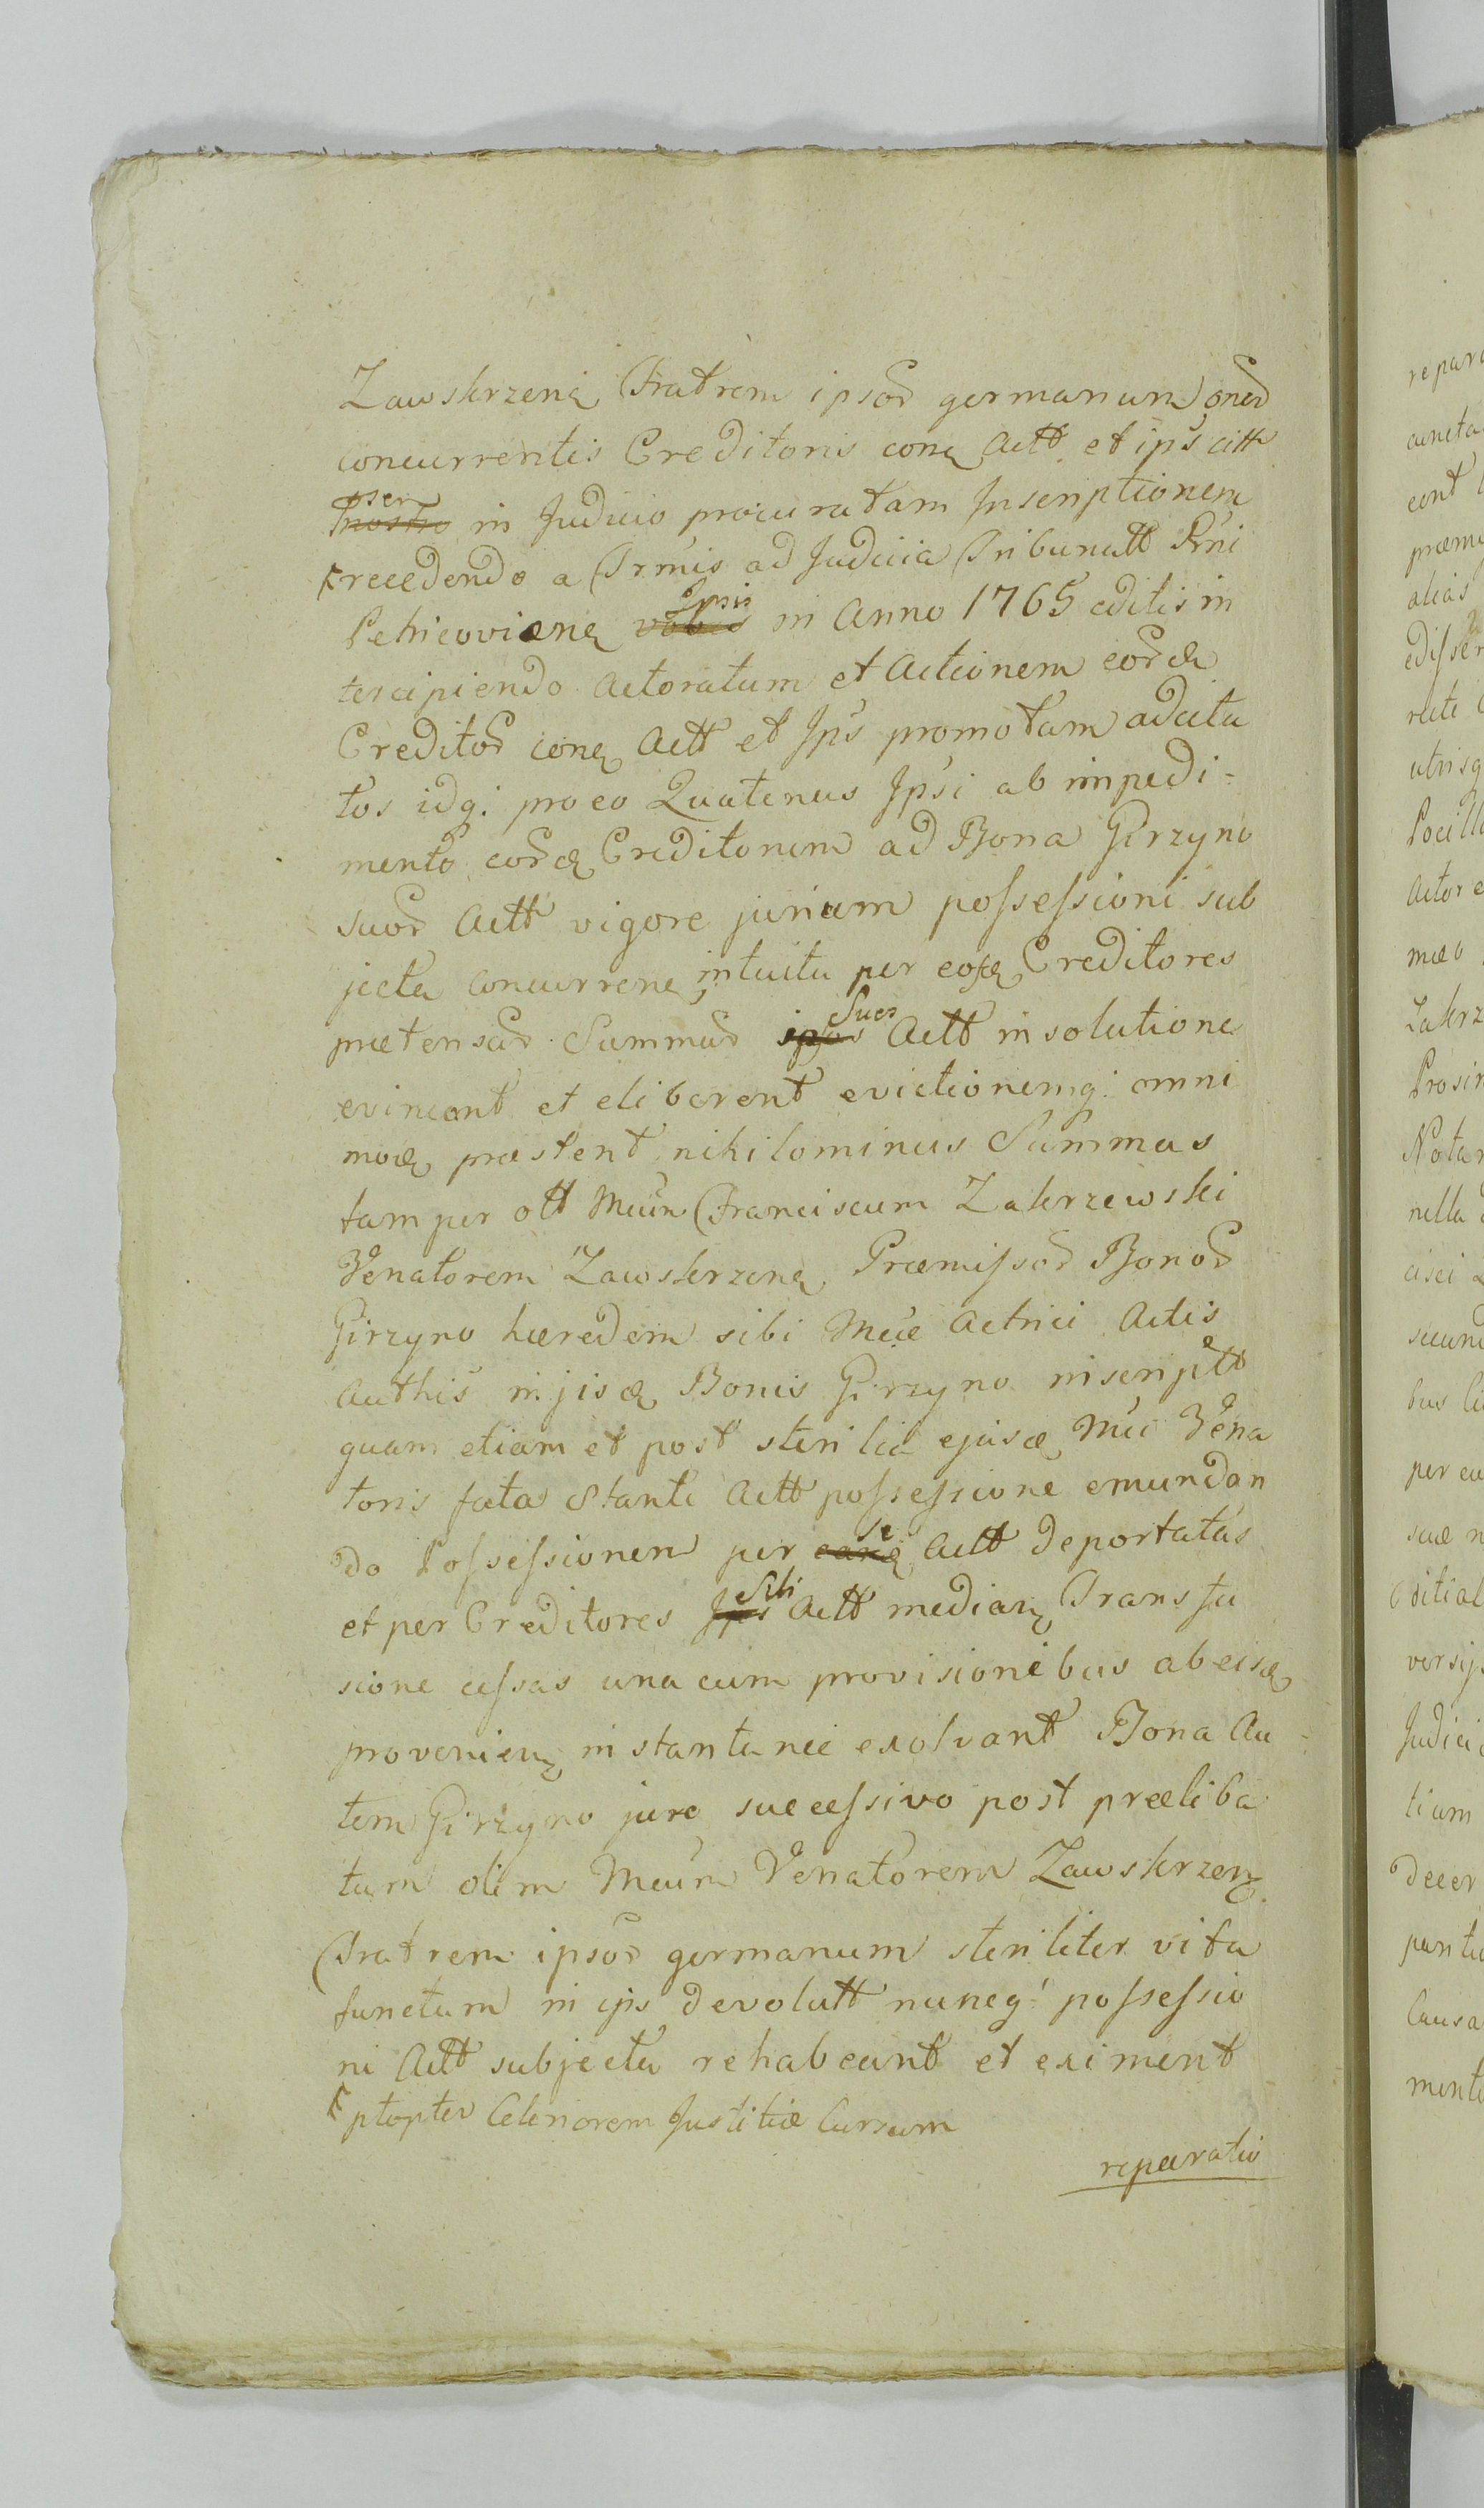 Zawskrzenę Fratrem ipsor germanum oner
concurrentis Creditoris conę Actt et ips citt
psen nostro in Judicio procuratam Inscriptionem
recedendo a Trmis ad Judicia Tribunatt Rni
Petricovienę vobis Ipsis in Anno 1765 editis in
tercipiendo Actoratum et Actionem eordę
Creditor conę Actt et Ips promotam adcita
tos idq: pro eo Quatenus Ipsi ab impedi=
mento eordę Creditorum ad Bona Girzyno
suor Actt vigore jurium possessioni sub
jecta concurrenę intuitu per eosdę Creditores
prætensar Summar ipsos Suos Actt in solutione
evincant et eliberent evictionemq: omni
modę præstent nihilominus Summas
tam per ott Mcum Franciscum Zakrzewski
Venatorem Zawskrzenę Præmissor Bonor
Girzyno hæredem sibi Mcæ Actrici Actis
Authis in jisdę Bonis Girzyno inscriptt
quam etiam et post sterilia ejusdę Mci Vena
toris fata stante Actt possessione emundan
do Possessionem per easdę se Actt deportatas
et per Creditores Ips Sibi Actt medianę Transfu
sione cessas una cum provisionibus ab eisdę
provenienę instantanee exolvant Bona Au
tem Girzyno jure successivo post præliba
tum olim Mcum Venatorem Zawskrzenę
Fratrem ipsor germanum steriliter vita
functum in ijs devolutt nuncq: possessio
ni Actt subjecta rehabeant et eximent
ptopter Celeriorem Justitiæ Cursum
reparatio
repara
alias
Notar
per ea
Judici
tium
Decer
Causa